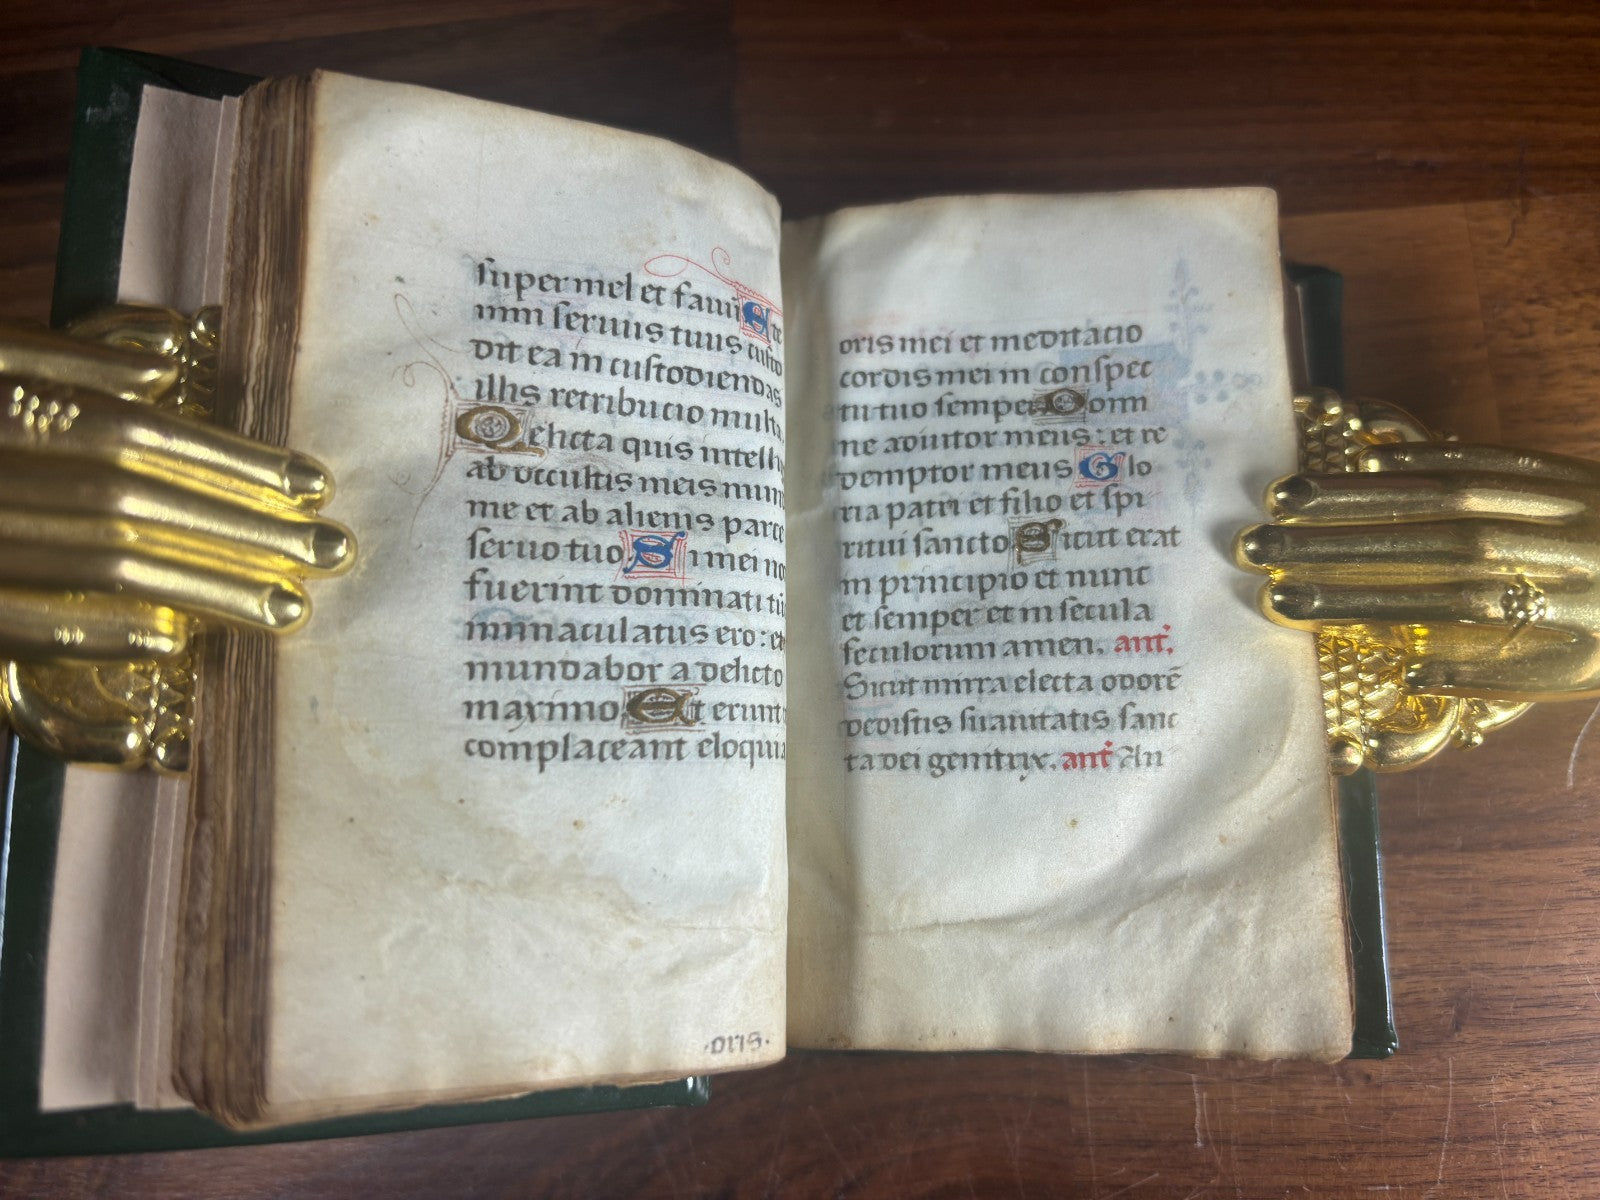 super mel et favū Et
nim seruus tuus custo
dit ea in custodiendas
illis retribucio multa.
Delicta quis intelli
ab occultis meis mun
me et ab alienis parce
seruo tuo Si mei no
fuerint dominati tūc
immaculatus ero: et
mundabor a delicto
maximo Et erunt
complaceant eloquia
.oris.
oris mei et meditacio
cordis mei in conspec
tu tuo semper Domi
ne adiutor meus: et re
demptor meus Glo
ria patri et filio et spi
ritui sancto Sicut erat
in principio et nunc
et semper et in secula
seculorum amen. anť.
Sicut mirra electa odorē
dedistis suauitatis sanc
ta dei genitrix. anť An